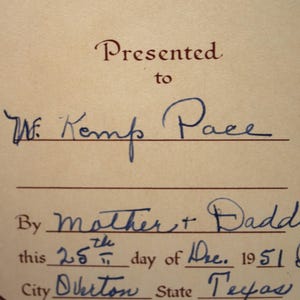 Presented
to
W. Kemp Pace
By Mother + Dadd
this 25th day of Dec. 1951
City Overton State Texas